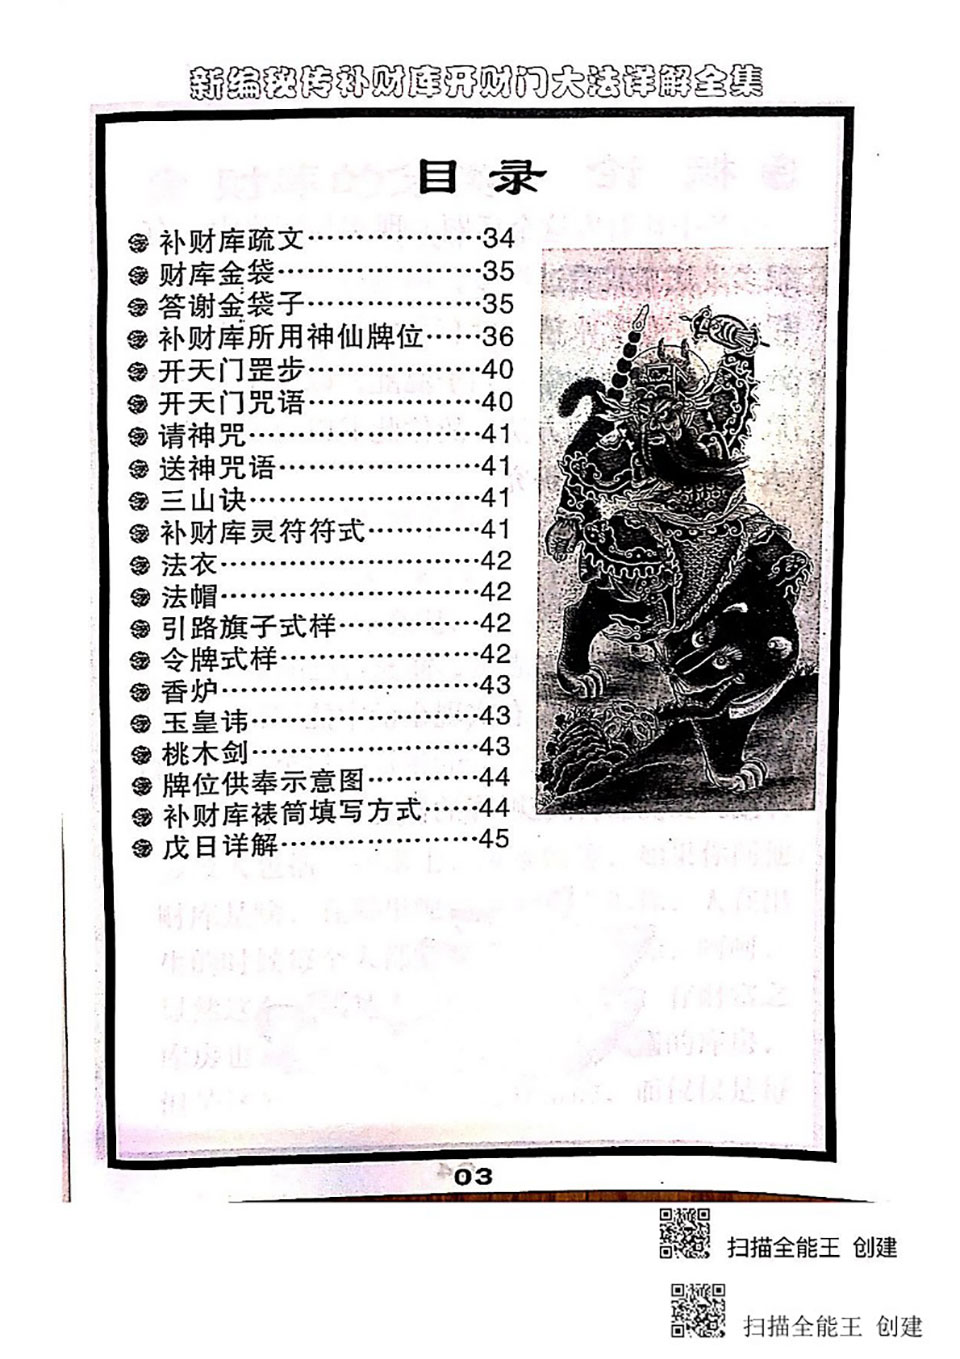 新编秘传补财库开财门大法详解全集
目录
补财库疏文··················34
财库金袋·····················35
答谢金袋子··················35
补财库所用神仙牌位······36
开天门罡步··················40
开天门咒语··················40
请神咒························41
送神咒语·····················41
三山诀························41
补财库灵符符式············41
法衣···························42
法帽···························42
引路旗子式样···············42
令牌式样·····················42
香炉···························43
玉皇讳························43
桃木剑························43
牌位供奉示意图············44
补财库裱筒填写方式······44
戊日详解·····················45
03
扫描全能王 创建
扫描全能王 创建